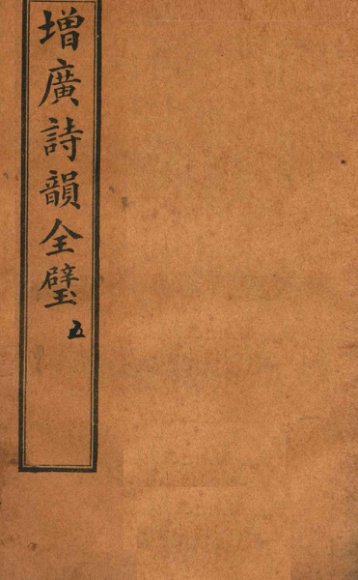 增廣詩韻全璧
五